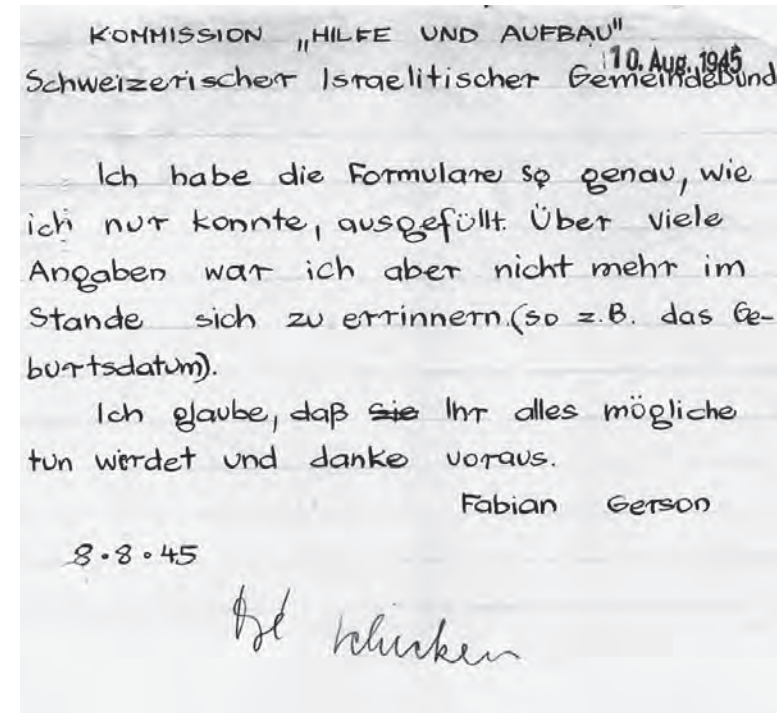 KOMMISSION „HILFE UND AUFBAU"
10. Aug. 1945
Schweizerischer Israelitischer Gemeindebund
Ich habe die Formulare so genau, wie
ich nur konnte, ausgefüllt. Über viele
Angaben war ich aber nicht mehr im
Stande sich zu errinnern.(so z.B. das Ge-
burtsdatum).
Ich glaube, daß sie Ihr alles mögliche
tun werdet und danke voraus.
Fabian Gerson
8.8.45
schicken